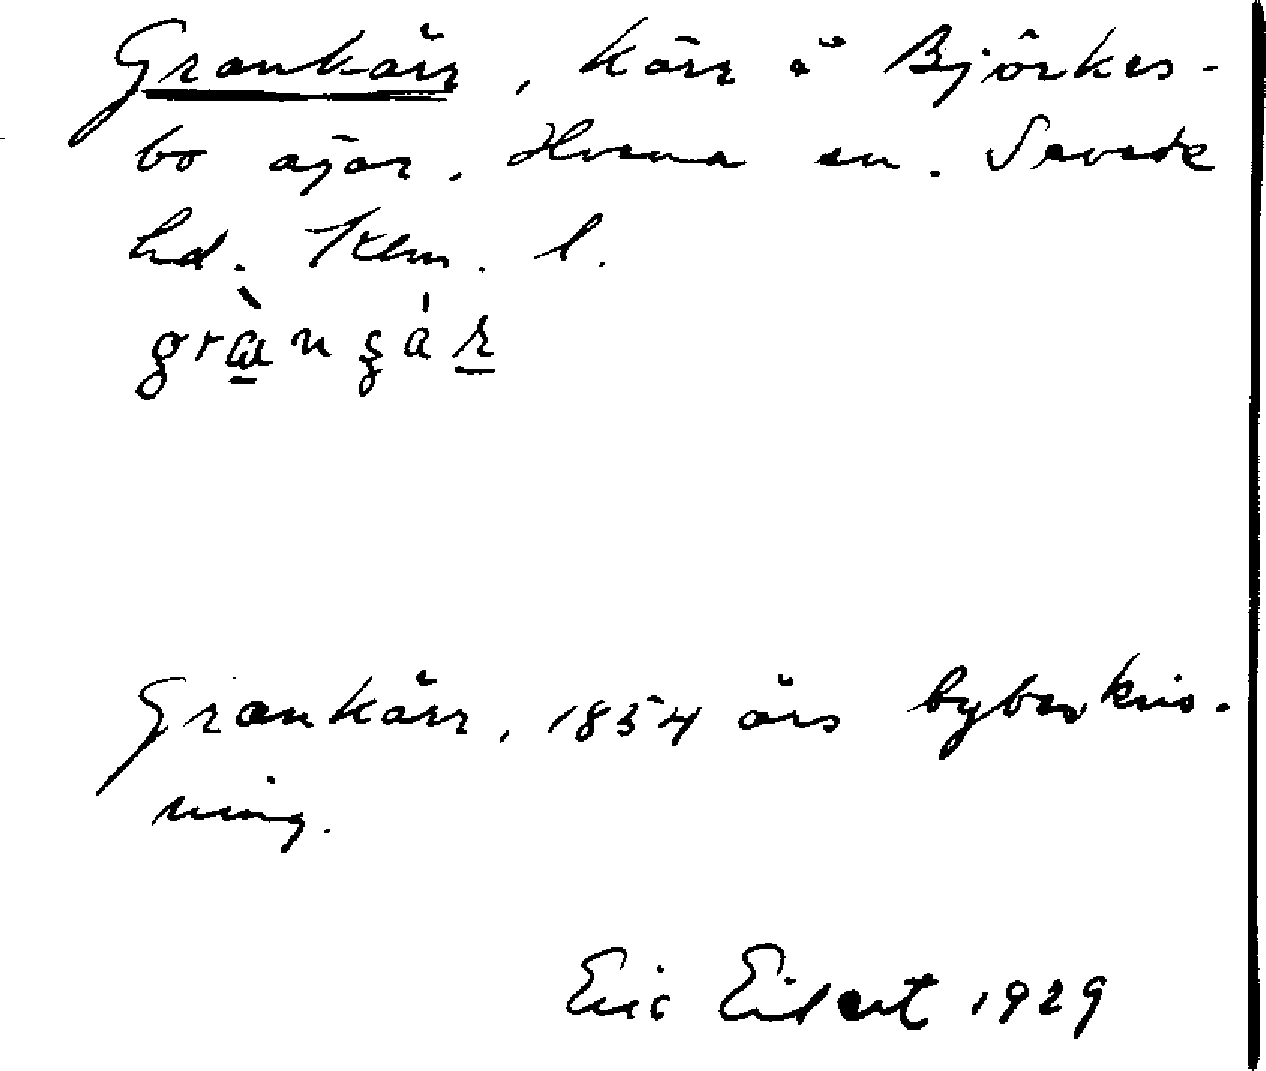 Grankärr, kärr å Björkes-
bo ägor. Hvena sn. Sevede
hd. Klm. l.
Grankärr, 1854 års byberkris-
ning.
Eric Eilert 1929